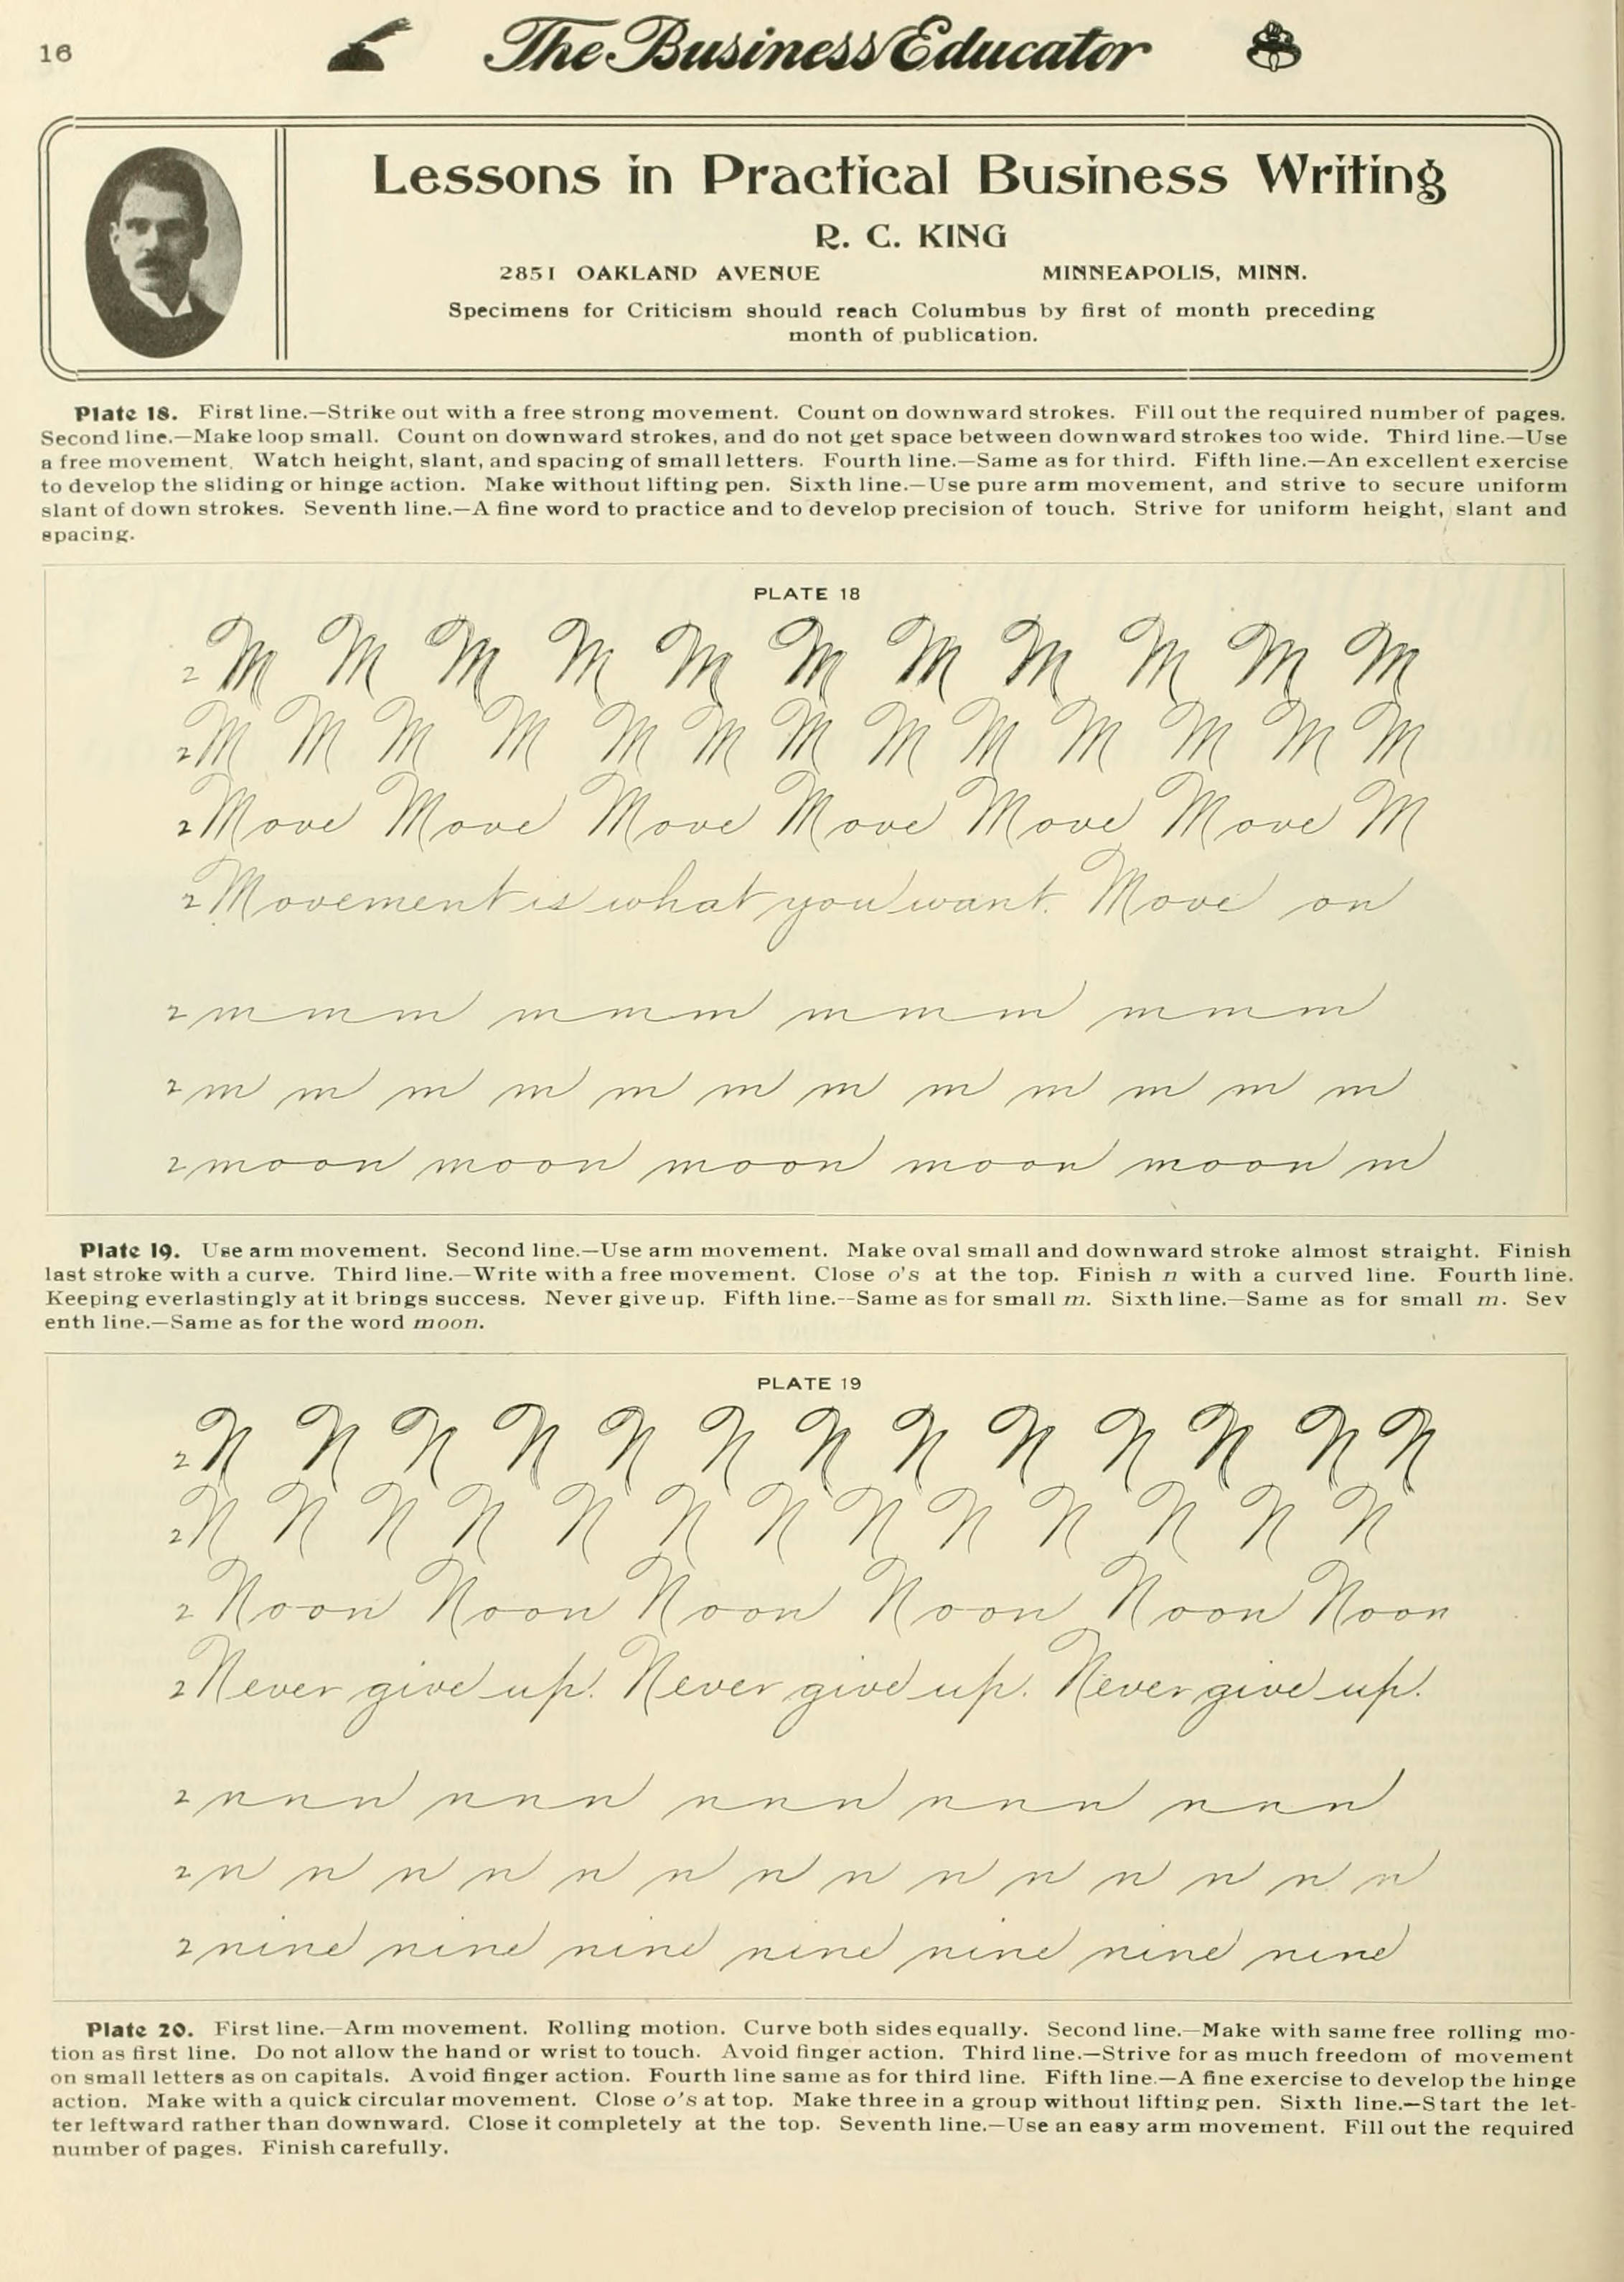 16
The Business Educator
Lessons in Practical Business Writing
R. C. KING
2851 OAKLAND AVENUE MINNEAPOLIS, MINN.
Specimens for Criticism should reach Columbus by first of month preceding
month of publication.
Plate 18. First line.—Strike out with a free strong movement. Count on downward strokes. Fill out the required number of pages.
Second line.—Make loop small. Count on downward strokes, and do not get space between downward strokes too wide. Third line.—Use
a free movement. Watch height, slant, and spacing of small letters. Fourth line.—Same as for third. Fifth line.—An excellent exercise
to develop the sliding or hinge action. Make without lifting pen. Sixth line.—Use pure arm movement, and strive to secure uniform
slant of down strokes. Seventh line.—A fine word to practice and to develop precision of touch. Strive for uniform height, slant and
spacing.
PLATE 18
2 M M M M M M M M M M M
2 M M M M M M M M M M M M M
2 Move Move Move Move Move Move M
2 Movement is what you want. Move on
2 m m m m m m m m m m m m
2 m m m m m m m m m m m m
2 moon moon moon moon moon m
Plate 19. Use arm movement. Second line.—Use arm movement. Make oval small and downward stroke almost straight. Finish
last stroke with a curve. Third line.—Write with a free movement. Close o's at the top. Finish n with a curved line. Fourth line.
Keeping everlastingly at it brings success. Never give up. Fifth line.--Same as for small m. Sixth line.—Same as for small m. Sev
enth line.—Same as for the word moon.
PLATE 19
2 N N N N N N N N N N N N N
2 N N N N N N N N N N N N N
2 Noon Noon Noon Noon Noon Noon
2 Never give up. Never give up. Never give up.
2 n n n n n n n n n n n n n n n
2 n n n n n n n n n n n n n n
2 nine nine nine nine nine nine nine
Plate 20. First line.—Arm movement. Rolling motion. Curve both sides equally. Second line.—Make with same free rolling mo-
tion as first line. Do not allow the hand or wrist to touch. Avoid finger action. Third line.—Strive for as much freedom of movement
on small letters as on capitals. Avoid finger action. Fourth line same as for third line. Fifth line.—A fine exercise to develop the hinge
action. Make with a quick circular movement. Close o's at top. Make three in a group without lifting pen. Sixth line.—Start the let-
ter leftward rather than downward. Close it completely at the top. Seventh line.—Use an easy arm movement. Fill out the required
number of pages. Finish carefully.